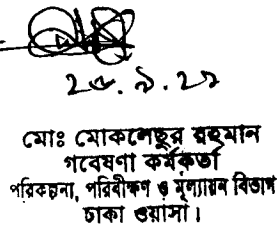 ২৫.৯.২১
মোঃ মোকলেছুর রহমান
গবেষণা কর্মকর্তা
পরিকল্পনা, পরিবীক্ষণ ও মূল্যায়ন বিভাগ
ঢাকা ওয়াসা।